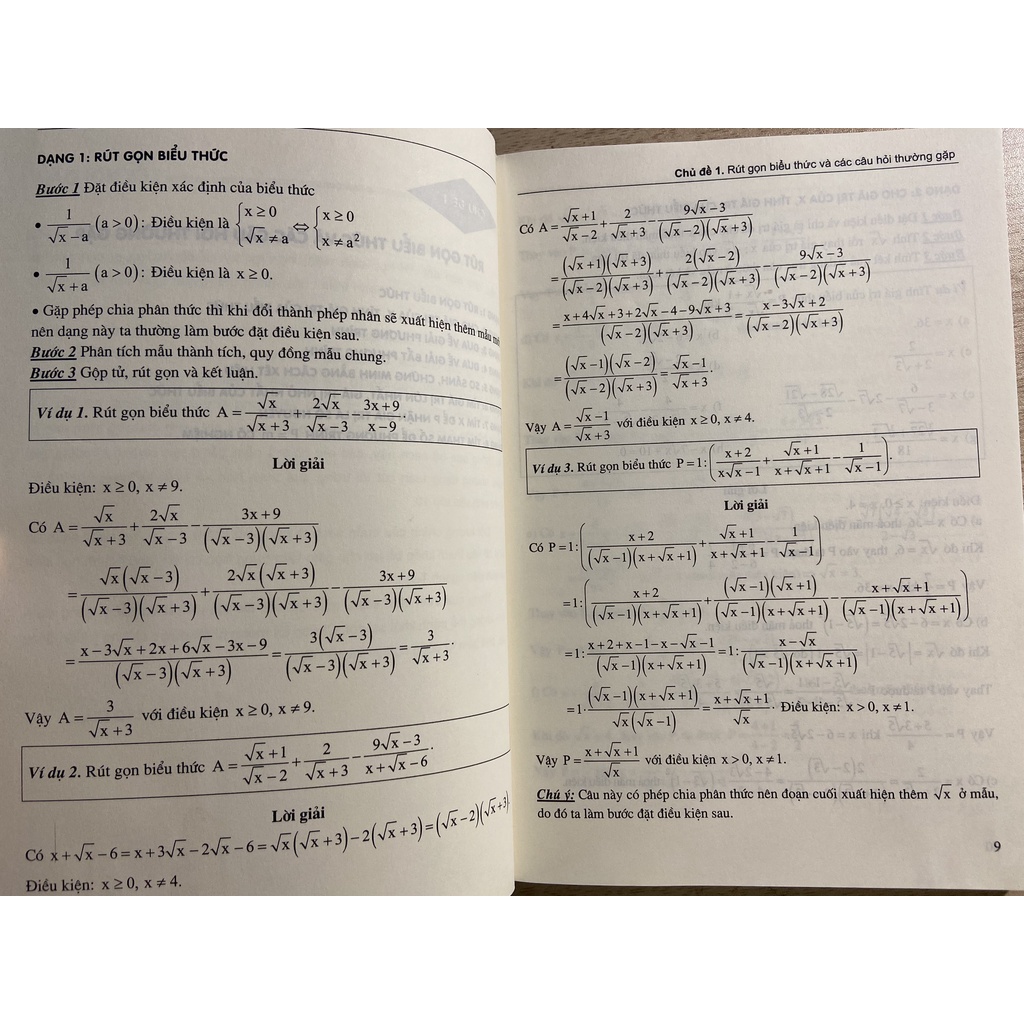 DẠNG 1: RÚT GỌN BIỂU THỨC
Bước 1 Đặt điều kiện xác định của biểu thức
• 1/(√x − a) (a > 0): Điều kiện là {x ≥ 0; √x ≠ a ⇔ {x ≥ 0; x ≠ a²
• 1/(√x + a) (a > 0): Điều kiện là x ≥ 0.
• Gặp phép chia phân thức thì khi đổi thành phép nhân sẽ xuất hiện thêm mẫu
nên dạng này ta thường làm bước đặt điều kiện sau.
Bước 2 Phân tích mẫu thành tích, quy đồng mẫu chung.
Bước 3 Gộp tử, rút gọn và kết luận.
Ví dụ 1. Rút gọn biểu thức A = √x/(√x + 3) + 2√x/(√x − 3) − (3x + 9)/(x − 9).
Lời giải
Điều kiện: x ≥ 0, x ≠ 9.
Có A = √x/(√x + 3) + 2√x/(√x − 3) − (3x + 9)/((√x − 3)(√x + 3))
= √x(√x − 3)/((√x − 3)(√x + 3)) + 2√x(√x + 3)/((√x − 3)(√x + 3)) − (3x + 9)/((√x − 3)(√x + 3))
= (x − 3√x + 2x + 6√x − 3x − 9)/((√x − 3)(√x + 3)) = 3(√x − 3)/((√x − 3)(√x + 3)) = 3/(√x + 3).
Vậy A = 3/(√x + 3) với điều kiện x ≥ 0, x ≠ 9.
Ví dụ 2. Rút gọn biểu thức A = (√x + 1)/(√x − 2) + 2/(√x + 3) − (9√x − 3)/(x + √x − 6).
Lời giải
Có x + √x − 6 = x + 3√x − 2√x − 6 = √x(√x + 3) − 2(√x + 3) = (√x − 2)(√x + 3).
Điều kiện: x ≥ 0, x ≠ 4.
Chủ đề 1. Rút gọn biểu thức và các câu hỏi thường gặp
Có A = (√x + 1)/(√x − 2) + 2/(√x + 3) − (9√x − 3)/((√x − 2)(√x + 3))
= (√x + 1)(√x + 3)/((√x − 2)(√x + 3)) + 2(√x − 2)/((√x − 2)(√x + 3)) − (9√x − 3)/((√x − 2)(√x + 3))
= (x + 4√x + 3 + 2√x − 4 − 9√x + 3)/((√x − 2)(√x + 3)) = (x − 3√x + 2)/((√x − 2)(√x + 3))
= (√x − 1)(√x − 2)/((√x − 2)(√x + 3)) = (√x − 1)/(√x + 3).
Vậy A = (√x − 1)/(√x + 3) với điều kiện x ≥ 0, x ≠ 4.
Ví dụ 3. Rút gọn biểu thức P = 1 : ((x + 2)/(x√x − 1) + (√x + 1)/(x + √x + 1) − 1/(√x − 1)).
Lời giải
Có P = 1 : ((x + 2)/((√x − 1)(x + √x + 1)) + (√x + 1)/(x + √x + 1) − 1/(√x − 1))
= 1 : ((x + 2)/((√x − 1)(x + √x + 1)) + (√x − 1)(√x + 1)/((√x − 1)(x + √x + 1)) − (x + √x + 1)/((√x − 1)(x + √x + 1)))
= 1 : (x + 2 + x − 1 − x − √x − 1)/((√x − 1)(x + √x + 1)) = 1 : (x − √x)/((√x − 1)(x + √x + 1))
= 1 · (√x − 1)(x + √x + 1)/(√x(√x − 1)) = (x + √x + 1)/√x. Điều kiện: x > 0, x ≠ 1.
Vậy P = (x + √x + 1)/√x với điều kiện x > 0, x ≠ 1.
Chú ý: Câu này có phép chia phân thức nên đoạn cuối xuất hiện thêm √x ở mẫu,
do đó ta làm bước đặt điều kiện sau.
9